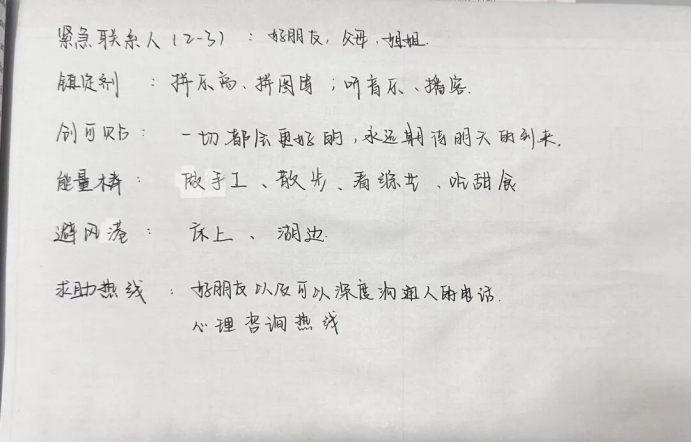 紧急联系人（2-3）：好朋友，父母，姐姐.
镇定剂：拼乐高、拼图等；听音乐、播客.
创可贴：一切都会更好的，永远期待明天的到来.
能量棒：做手工、散步、看综艺、吃甜食
避风港：床上、湖边.
求助热线：好朋友以及可以深度沟通人的电话.
心理咨询热线